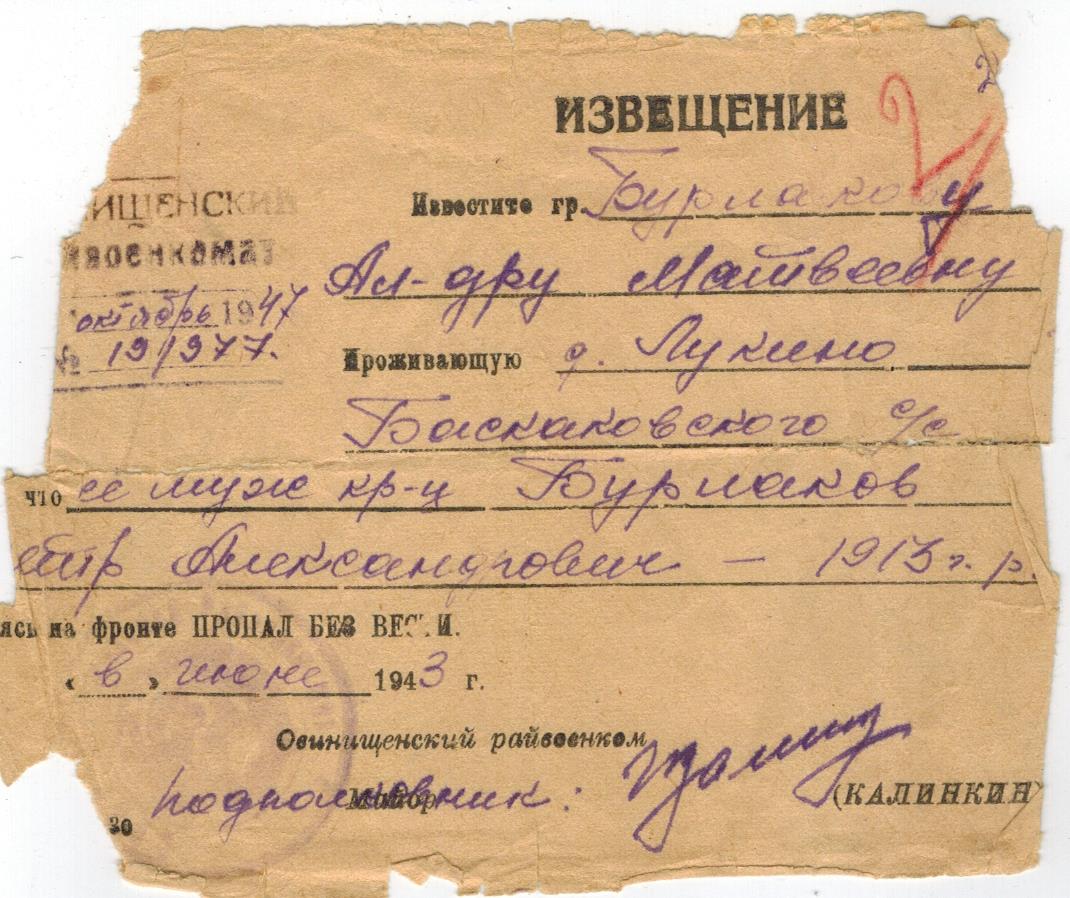 2
ИЗВЕЩЕНИЕ
Известите гр. Бурлакову
Ал-дру Матвеевну
Проживающую д. Лукино
Баскаковского с/с
ИЩЕНСКИЙ
йвоенкомат
октябрь 1947
№ 19/977.
что ее муж кр-ц Бурлаков
етр Александрович — 1913 г. р.
ясь на фронте ПРОПАЛ БЕЗ ВЕСТИ.
« в » июне 1943 г.
Овинищенский райвоенком
подполковник:
Майор
(КАЛИНКИН)
зо